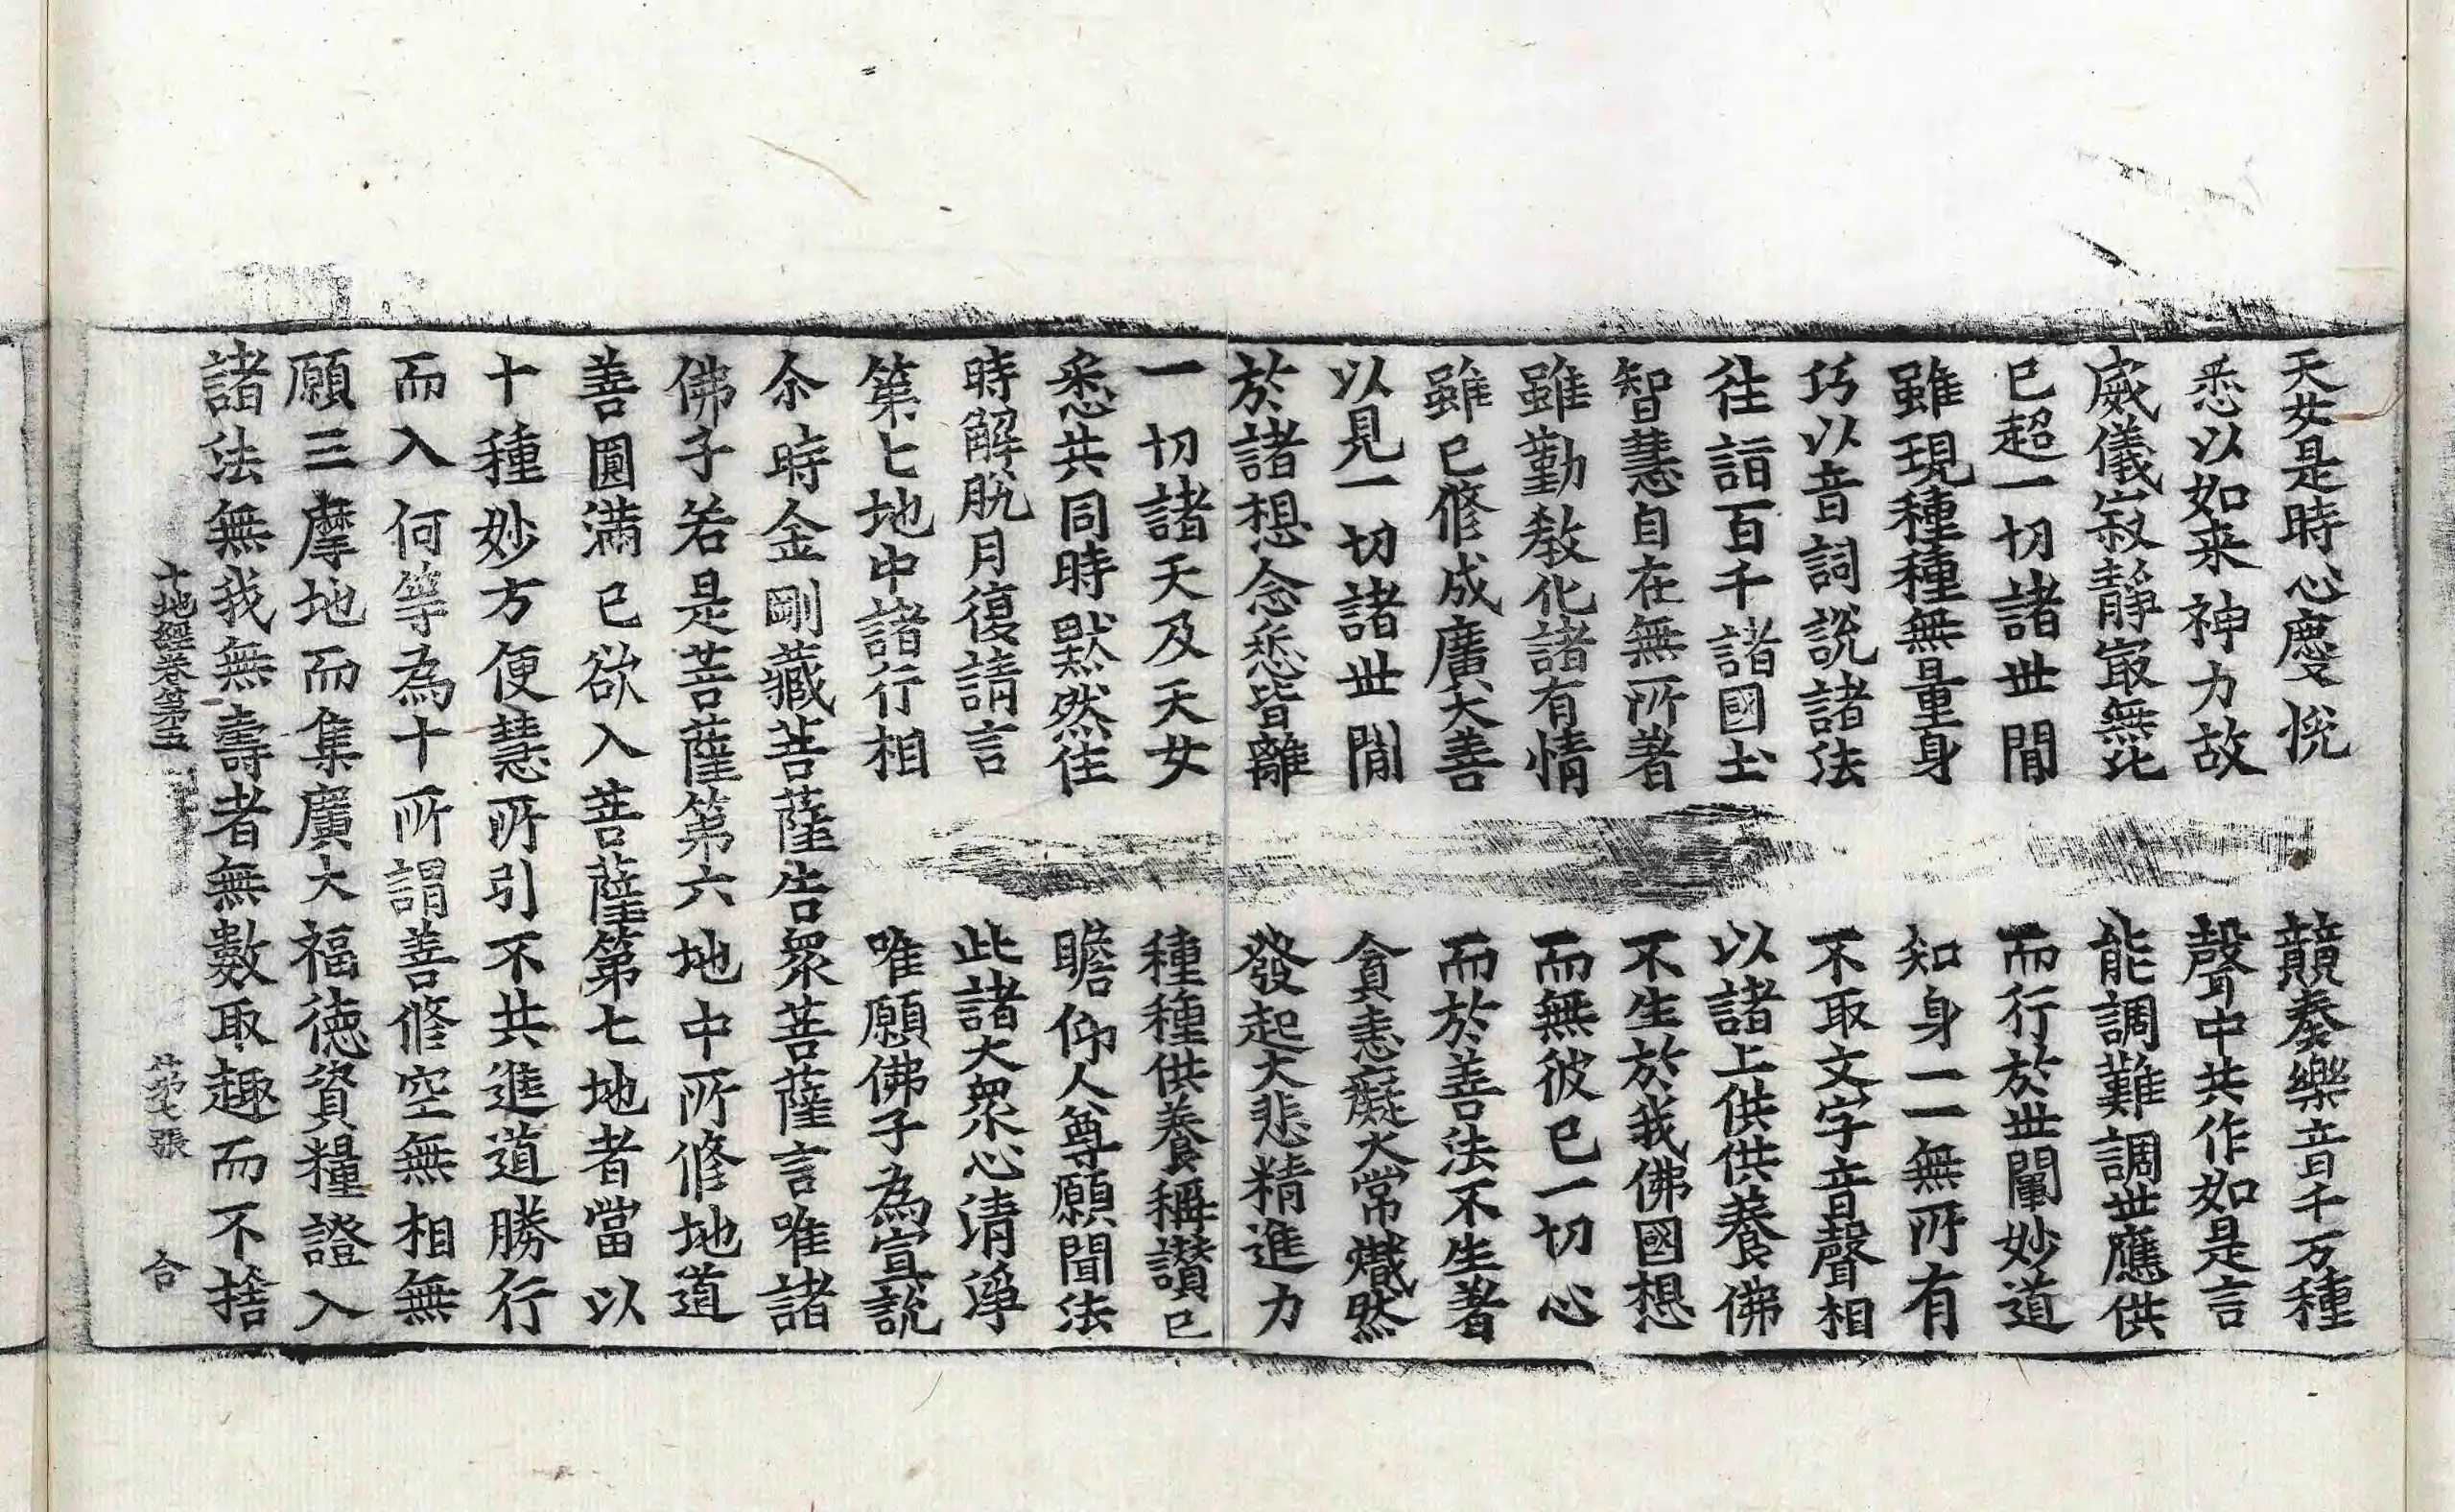 天女是時心慶悅　競奏樂音千万種
悉以如来神力故　聲中共作如是言
威儀寂靜㝡無比　能調難調世應供
已超一切諸世間　而行於世闡妙道
雖現種種無量身　知身一一無所有
巧以音詞說諸法　不取文字音聲相
往詣百千諸國土　以諸上供供養佛
智慧自在無所著　不生於我佛國想
雖勤教化諸有情　而無彼已一切心
雖已修成廣大善　而於善法不生著
以見一切諸世間　貪恚癡火常熾然
於諸想念悉皆離　發起大悲精進力
一切諸天及天女　種種供養稱讚已
悉共同時默然住　瞻仰人尊願聞法
時解脫月復請言　此諸大衆心清淨
第七地中諸行相　唯願佛子為宣說
尒時金剛藏菩薩告衆菩薩言唯諸
佛子若是菩薩第六地中所修地道
善圓滿已欲入菩薩第七地者當以
十種妙方便慧所引不共進道勝行
而入何等為十所謂善修空無相無
願三摩地而集廣大福德資糧證入
諸法無我無壽者無數取趣而不捨
十地經卷第五　第七張　合